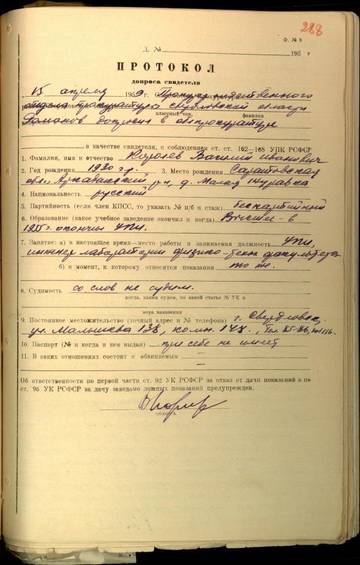 288
Ф. № 8
Д. № 195 г
ПРОТОКОЛ
допроса свидетеля
15 апреля 1959 г. Прокурор следственного
отдела прокуратуры Свердловской области
классный чин фамилия
Романов допросил в облпрокуратуре
в качестве свидетеля, с соблюдением ст. ст. 162—168 УПК РСФСР
1. Фамилия, имя и отчество Королев Василий Иванович
2. Год рождения 1930 г. 3. Место рождения Саратовская
обл., д. Малая
4. Национальность русский
5. Партийность (если член КПСС, то указать № п/б и стаж) беспартийный
6. Образование (какое учебное заведение окончил и когда) Высшее - в
1955 г. окончил УПИ.
7. Занятие: а) в настоящее время—место работы и занимаемая должность УПИ,
инженер лаборатории физико-техн. факультета
б) в момент, к которому относятся показания то же.
8. Судимость со слов не судим.
когда, каким судом, по какой статье № УК и
мера наказания
9. Постоянное местожительство (точный адрес и № телефона) г. Свердловск,
ул. Малышева 138, комн. 148, Тел.
10. Паспорт (№ и когда и кем выдан) при себе не имеет
11. В каких отношениях состоит с обвиняемых —
Об ответственности по первой части ст. 92 УК РСФСР за отказ от дачи показаний и по
ст. 95 УК РСФСР за дачу заведомо ложных показаний предупрежден.
подпись